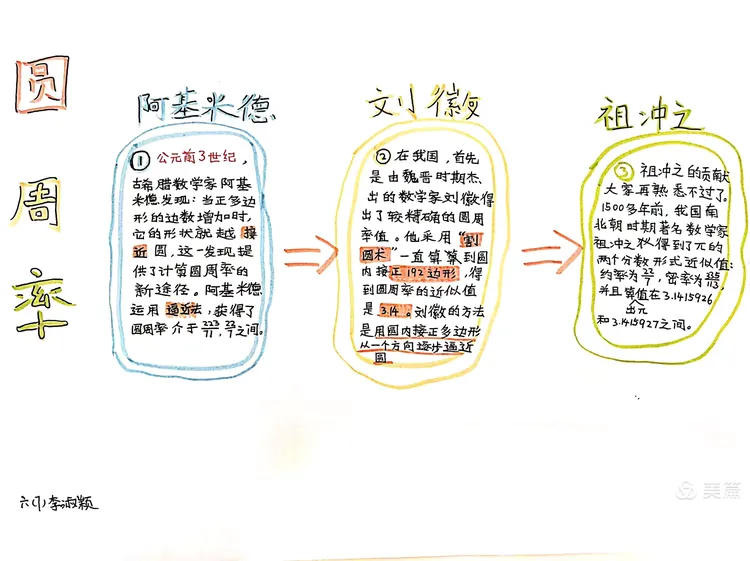 圆周率
阿基米德
① 公元前3世纪，
古希腊数学家阿基
米德发现：当正多边
形的边数增加时，
它的形状就越接
近圆，这一发现提
供了计算圆周率的
新途径。阿基米德
运用逼近法，获得了
圆周率介于223/71，22/7之间。
刘徽
② 在我国，首先
是由魏晋时期杰
出的数学家刘徽得
出了较精确的圆周
率值。他采用“割
圆术”一直算到圆
内接正192边形，得
到圆周率的近似值
是3.14。刘徽的方法
是用圆内接正多边形
从一个方向逐步逼近
圆
祖冲之
③ 祖冲之的贡献
大家再熟悉不过了。
1500多年前，我国南
北朝时期著名数学家
祖冲之获得到了π的
两个分数形式近似值：
约率为22/7，密率为355/113，
并且算值在3.1415926
出π
和3.1415927之间。
李淑颖
美篇